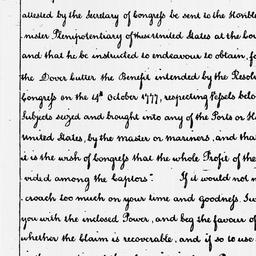 attested by the Secretary of Congress be sent to the Honble
nister Plenipotentiary of these United States at the Cou
and that he be instructed to endeavour to obtain, fo
the Dover cutter the Benefit intended by the Resolu
Congress on the 14th October 1777, respecting Vessels belon
subjects seized and brought into any of the Ports or Ha
United States, by the master or mariners, and that
it is the wish of Congress that the whole Profit of the
vided among the Captors". If it would not n
croach too much on your time and goodness, I w
you with the inclosed Power, and beg the favour of
whether the Claim is recoverable, and if so to use